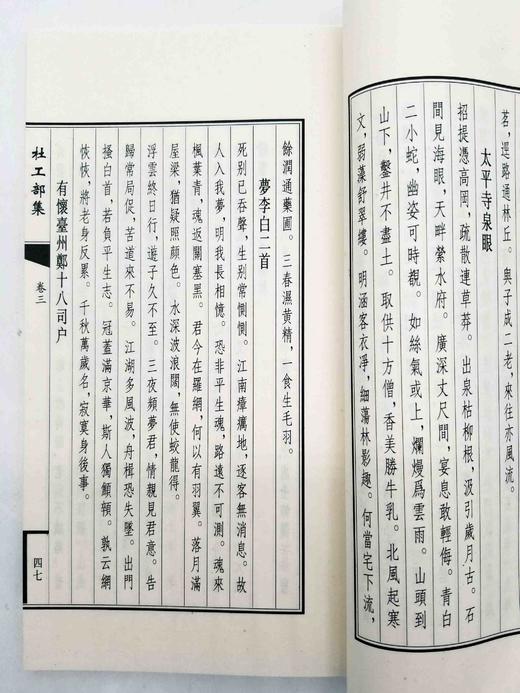 茗，逕路通林丘。與子成二老，來往亦風流。
太平寺泉眼
招提憑高岡，疏散連草莽。出泉枯柳根，汲引歲月古。石
間見海眼，天畔縈水府。廣深丈尺間，宴息敢輕侮。青白
二小蛇，幽姿可時覩。如絲氣或上，爛熳爲雲雨。山頭到
山下，鑿井不盡土。取供十方僧，香美勝牛乳。北風起寒
文，弱藻舒翠縷。明涵客衣淨，細蕩林影趣。何當宅下流，
餘潤通藥圃。三春濕黄精，一食生毛羽。
夢李白二首
死别已吞聲，生别常惻惻。江南瘴癘地，逐客無消息。故
人入我夢，明我長相憶。恐非平生魂，路遠不可測。魂來
楓葉青，魂返關塞黑。君今在羅網，何以有羽翼。落月滿
屋梁，猶疑照顏色。水深波浪闊，無使蛟龍得。
浮雲終日行，遊子久不至。三夜頻夢君，情親見君意。告
歸常局促，苦道來不易。江湖多風波，舟楫恐失墜。出門
搔白首，若負平生志。冠蓋滿京華，斯人獨顦顇。孰云網
恢恢，將老身反累。千秋萬歲名，寂寞身後事。
有懷臺州鄭十八司户
杜工部集
卷三
四七